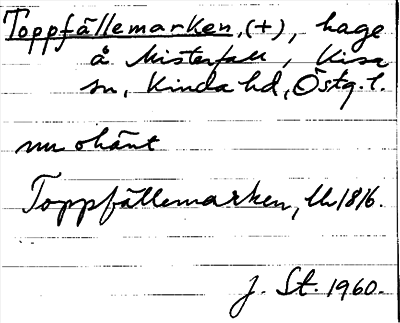 Toppfällemarken, (+), hage
å Misterfall, Kisa
sn, Kinda hd, Östg. l.
nu okänt
Toppfällemarken, Lh 1816.
J. St. 1960.